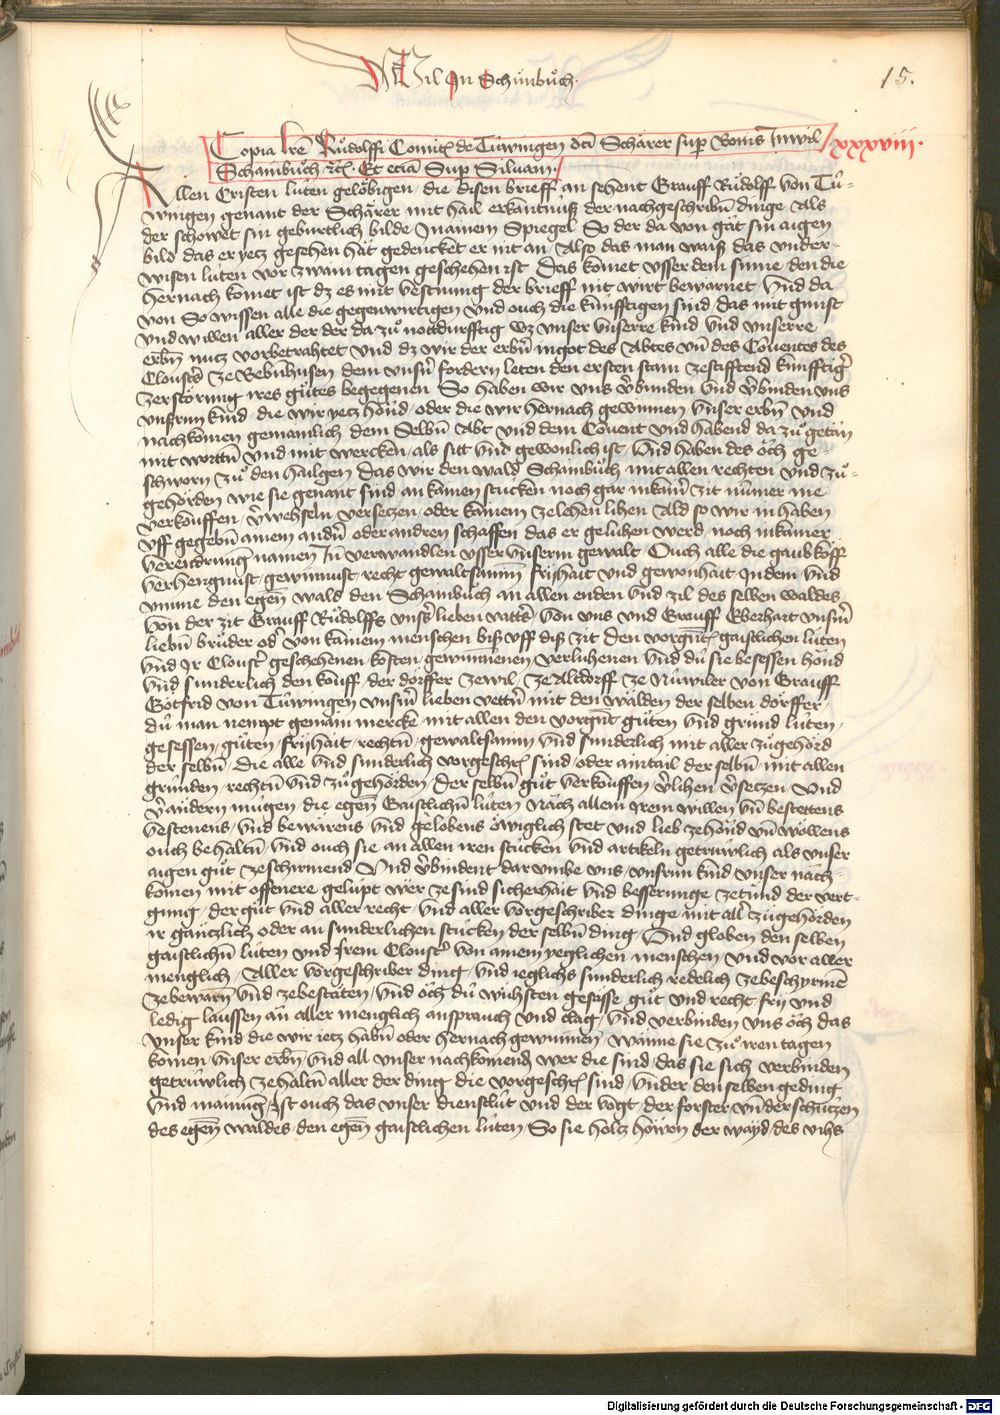 Wil Jn Schainbuͦch.
15.
Copia lr̄e Ruͦdolffi Comitꝭ de Tuͥwingen dc̄i Schaͤrer sup̄ bonis in wil
xxxviii.
Schainbuͦch ꝛcꝭ. Et ecia͞ Sup̄ Siluam.
Allen Cristen luͥten geloͤbigen die disen brieff an sehent Grauff Ruͦdolff von Tuͥ-
wingen genant der Schaͤrer mit hail erkantnuͥß der nachgeschribn̄ dinge Als
der schowet sin geburtlich bilde Jn ainem Spiegel So der da von gāt sin aigen
bild das er yecz gesehen hāt gedencket er nit an / Also das man waiß das vnder-
wisen luͥten vor zwain tagen geschehen ist Das komet vsser dem sinne den die
hernach komet ist dz es mit vestnung der brieff nit wirt bewarnet Vnd da
von So wissen alle die gegenwirtigen vnd ouch die kuͥnfftigen sind das mit gunst
vnd willen aller der der da zuͦ nottdurfftig wz vnser vnserre kind vnd vnserre
erbn̄ nucz vorbetrahtet vnd dz wir der erbn̄ in got des Abtes vn̄ des Couentes des
Clousters ze Bebn̄husen dem vnsn̄ fordern leten den ersten stain ze stifftend kuͥnfftigr̄
zerstoͤrung ires guͦtes begegenen So haben wir vns v̄bunden vnd v̄binden vns
vnsrun kind / die wir yecz hond oder die wir hernach gewinnen vnser erbn̄ vnd
nachkomen gemainlich dem Selbn̄ Abt vnd dem Couent vnd habend da zuͦ getān
mit wortt̄n vnd mit wercken / als sitt vnd gewonlich ist / Vnd haben des oͤch ge-
schworn zuͦ den hailgen Das wir den wald Schainbuͦch mit allen rechten vnd zuͦ-
gehoͤrden wie sie genant sind an kainen stucken noch gar in kain̄ zit nuͥmer me
verkouffen / v̄wehseln versetzen / oder kainem ze lehen lihen Ald so wir in haben
vff gegebn̄ ainem andn̄ oder andren schaffen das er geluhen werd / noch in kainer
verendrung namen Jn verwandlen vsser vnserm gewalt / Ouch alle die gaub koͤff
verhengnust / gewinnust / recht gewaltsamin̄ frijhait vnd gewonhait Jn dem vnd
vmme den egen̄ wald den Schainbuͦch an allen enden vnd zil des selben waldes
von der zit Grauff Ruͦdolffs vns̄s lieben vatters / von vns vnd Grauff Eberhart vnsm̄
liebn̄ bruͦder od von kainem menschen biß vff diß zit Den vorgn̄t gaistlichen luͥten
vnd Jr Clouster geschehenen / kosten / gewunnenen / verluhenen vnd duͥ sie besessen hond
vnd sunderlich den kouff / der dorffer ze wil / ze Altdorff ze Nuͥwiler von Grauff
Goͤtfrid von Tuͥwingen vnsm̄ lieben vettern̄ mit den waͤlden der selben doͤrffer
duͥ man nempt gemain mercke / mit allen den vorgn̄t guͤten vnd grund luͥten
gesessen / guͤten / frijhait / rechtn̄ / gewaltsamin vnd sunderlich mit aller zuͦgehoͤrd
der selbn̄ / Die alle vnd sunderlich vorgeschrꝭ sind / oder aintail der selbn̄ mit allen
gruͥnden / rechtn̄ vnd zuͦgehoͤrden / Der selbn̄ guͦt verkouffen / v̄lihen / v̄setzen vnd
v̄andern muͥgen die egen̄ Gaistlichn̄ luͥten nāch allem Jrem willen vn̄ bestettens
vestenens / vnd bewaͤrens vnd gelobens oͤwiglich stet vnd lieb ze hond vn̄ woͤllens
ouch behaltn̄ vnd ouch sie an allen iren stucken vnd artikeln getruͥwlich als vnser
aigen guͦt ze schirmend Vnd v̄bindent dar vmbe vns / vnsrun kind vnser nāch-
komen mit offenere geluͥpt wer ze sind sicherhait vnd besserunge ze tuͦnd der vert-
gung / der guͦt vnd aller recht / vnd aller vorgeschriber dinge mit allr̄ zuͦgehoͤrden
ir gaͤntzlich oder an sunderlichen stucken der selbn̄ ding / Vnd globen den selben
gaistlichn̄ luͥten vnd Jrem Clouster von ainem yeglichen menschen / vnd vor aller
menglich / Aller vorgeschriber ding / vnd ieglichs sunderlich redelich ze beschyrme̅
ze bewarn̄ vnd ze bestaͤten / vnd oͤch duͥ wuͥchsten gesaͤsse guͦt vnd recht frij vnd
ledig laussen ān aller menglich ansprauch vnd clag / vnd verbinden vns oͤch das
vnser kind die wir ietz habn̄ oder hernach gewinnen / wanne sie zuͦ iren tagen
komen vnser erbn̄ / vnd all vnser nachkomend wer die sind / das sie sich verbinden
getruͥwlich ze haltn̄ aller der ding die vorgeschrꝭ sind / vnder den selben geding
vnd mainung / Jst ouch das vnser dienstluͥt vnd der vogt / der forster vn̄ der schuͥtzen
des egen̄ waldes / den egen̄ gaistlichen luͥten / So sie holtz howen der wayd / des vihs
Digitalisierung gefördert durch die Deutsche Forschungsgemeinschaft - DFG